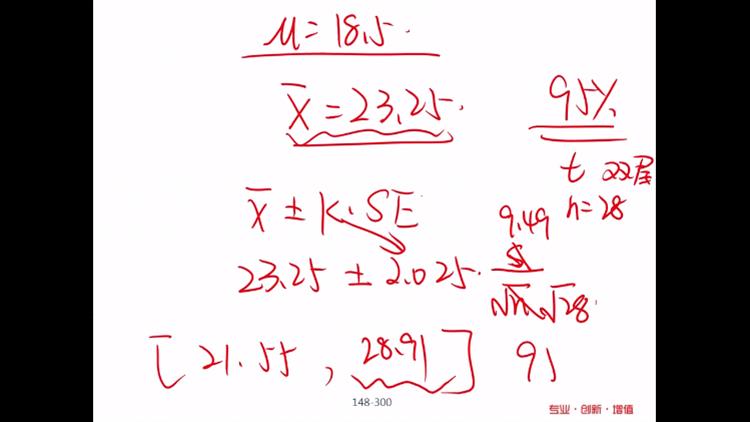 μ = 18.5.
x̄ = 23.25.
95%
t 双尾
n=28
x̄ ± K·SE
9.49
23.25 ± 2.025·
√n √28
[21.55, 28.91]
148-300
专业·创新·增值